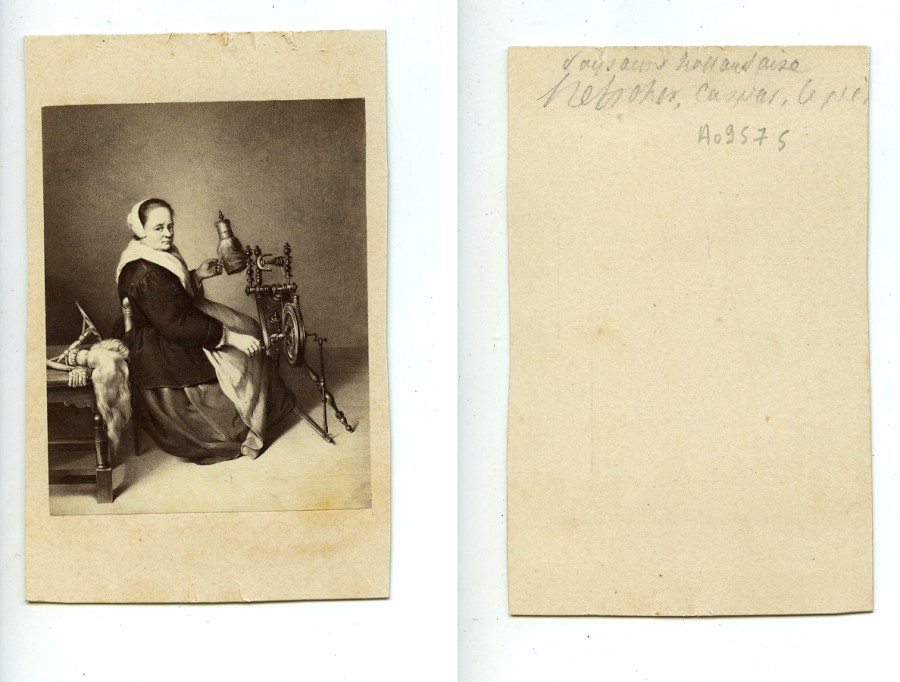 Paysanne hollandaise
Netscher, Caspar, le père
A09575